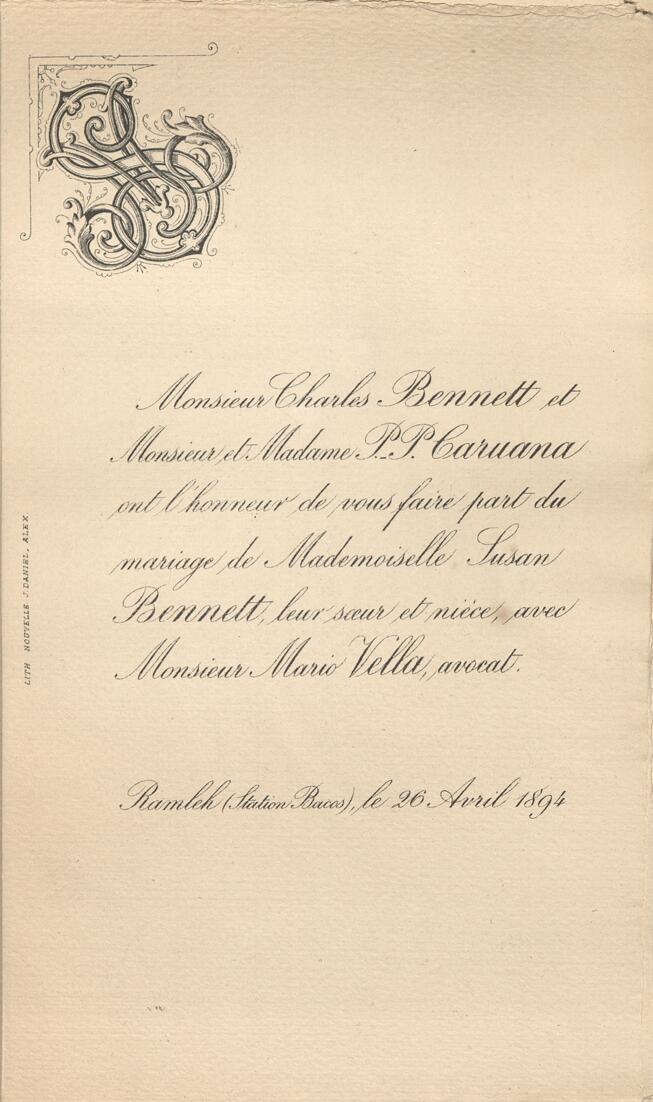 Monsieur Charles Bennett et
Monsieur et Madame P. P. Caruana
ont l'honneur de vous faire part du
mariage de Mademoiselle Susan
Bennett, leur sœur et nièce, avec
Monsieur Mario Vella, avocat.
Ramleh (Station Bacos), le 26 Avril 1894
LITH NOUVELLE J. DANIEL, ALEX.